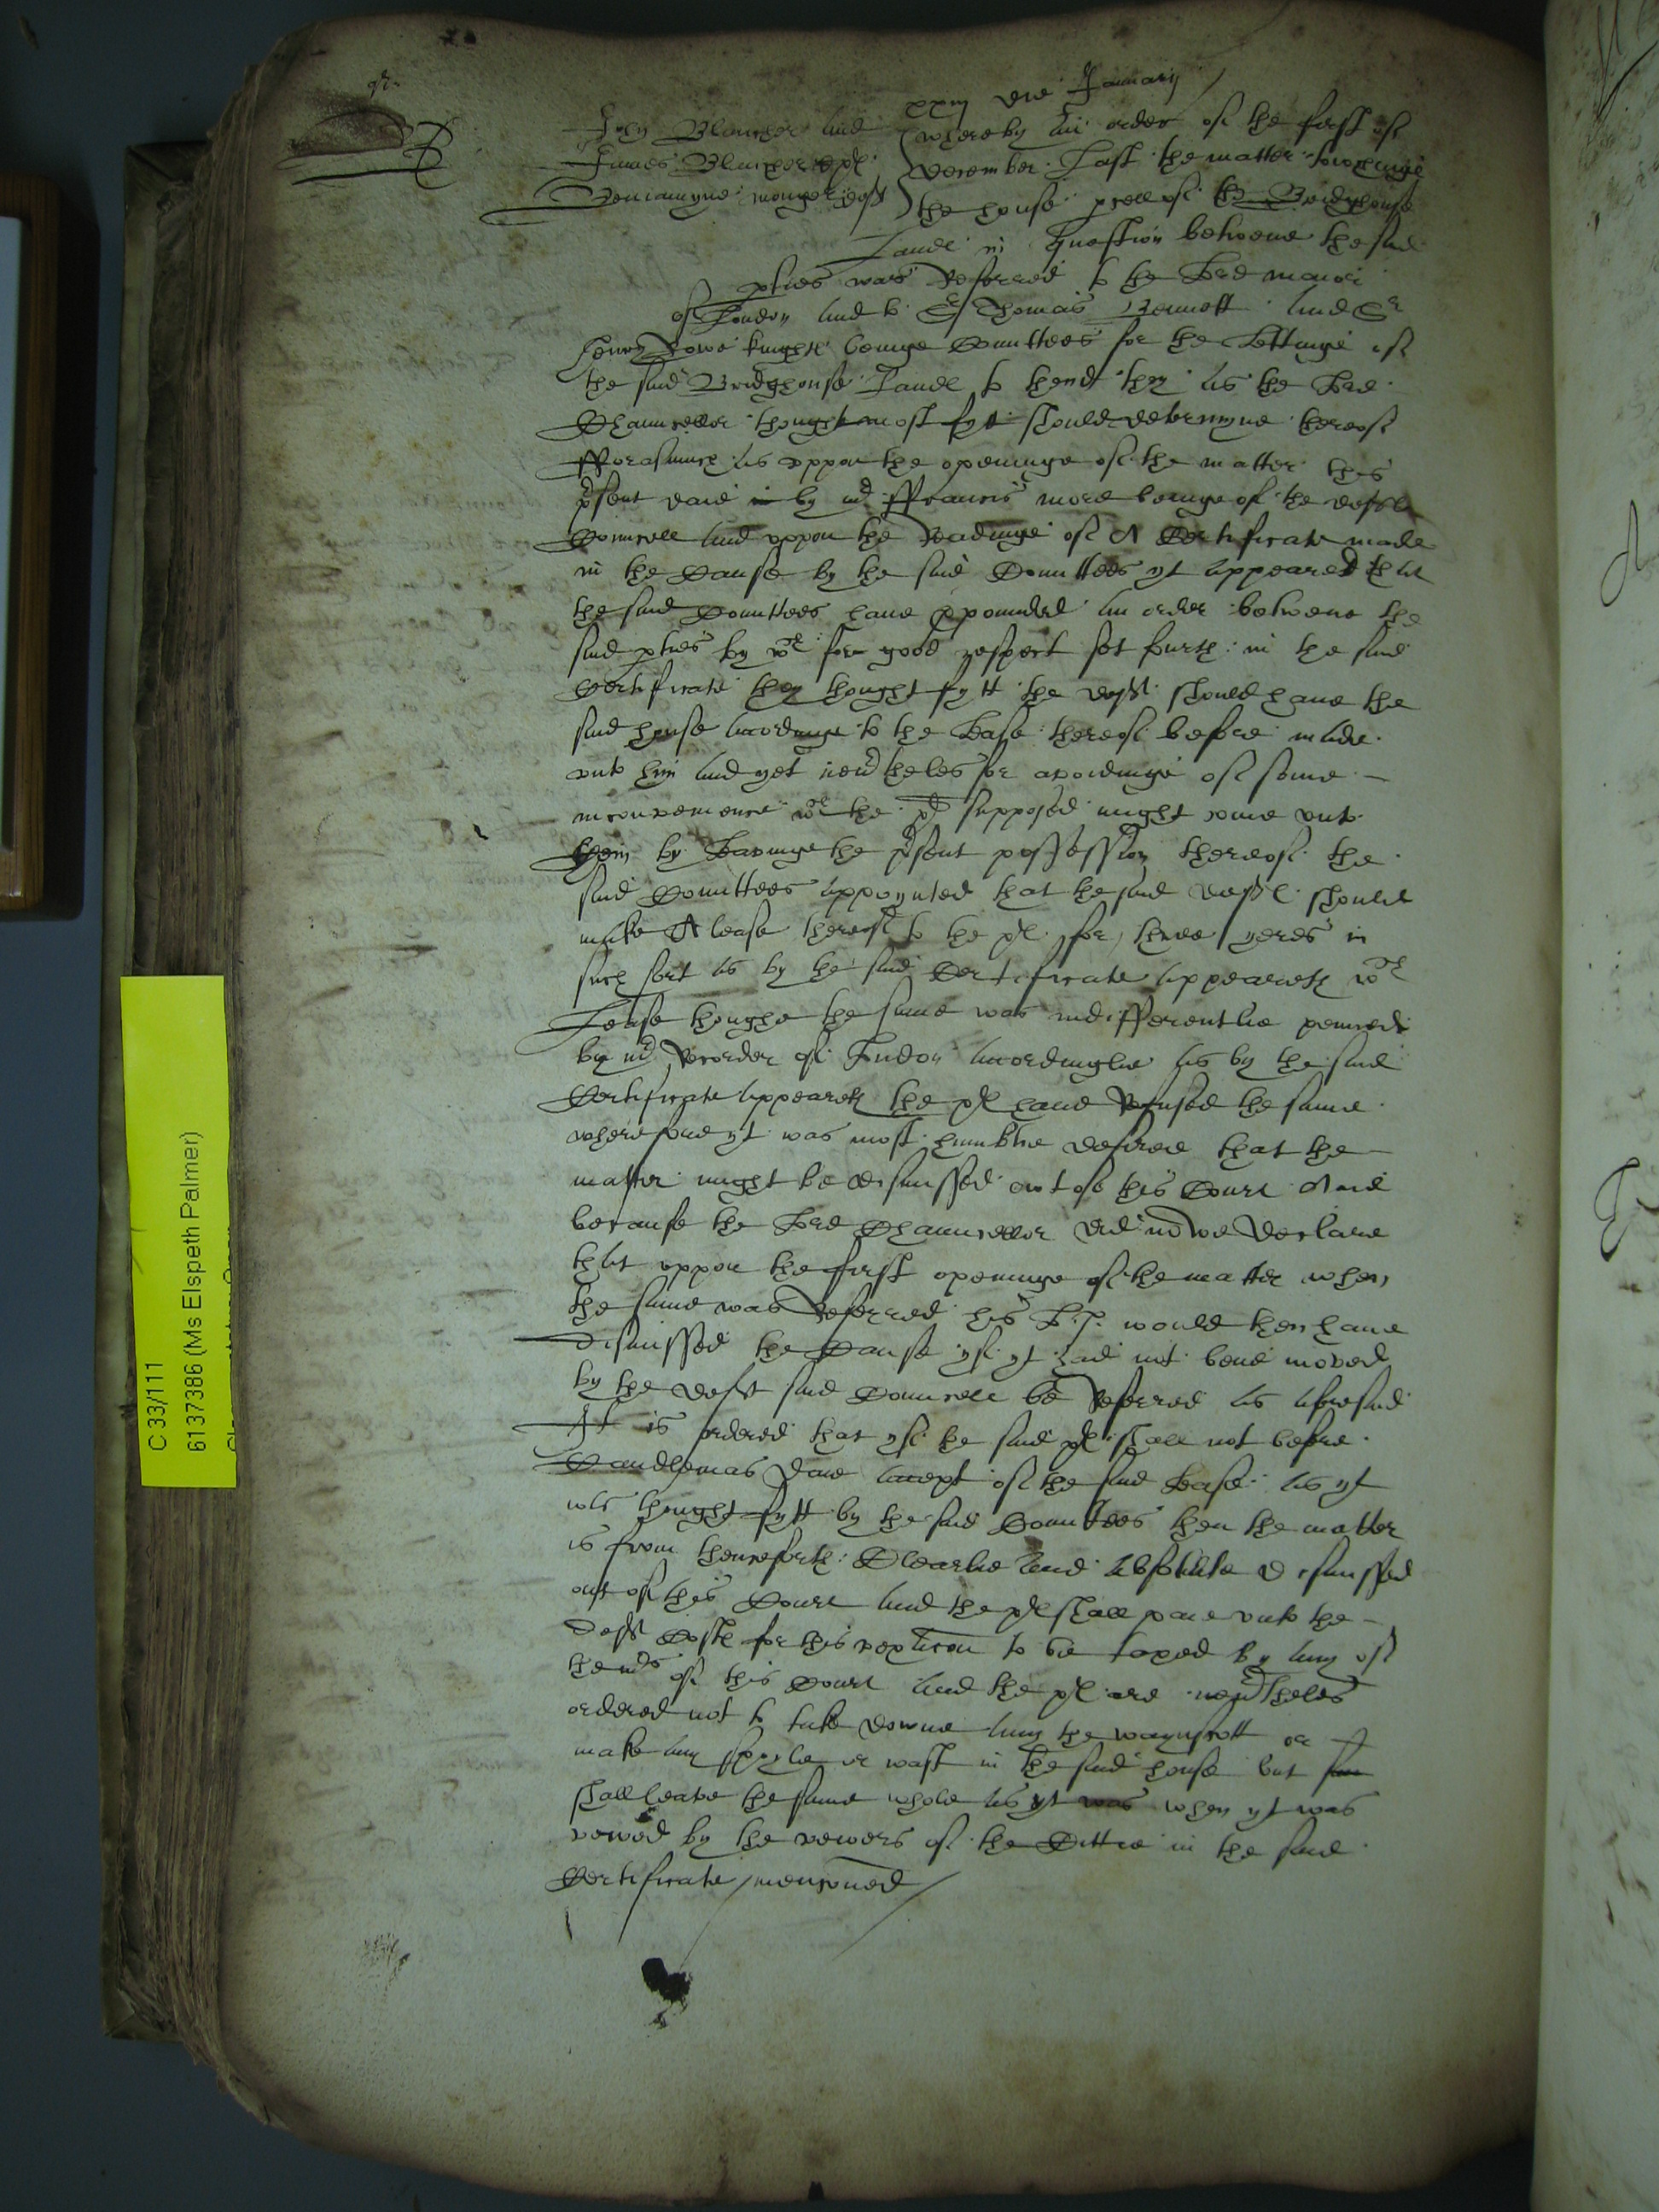 xxiij die Januarij
John Blancher and
James Blancher pl
Beniamyne monger deft
whereby an order of the first of
December Last the matter towchinge
the house pcell of the Bridghouse
Lande in question betwene the said
pties was Referred to the Lord maior
of London and to Sr Thomas Bennett and Sr
Henry Rowe knights beinge Comittees for the Lettinge of
the said Bridghouse Lande to thend they as the Lord
Chauncellor thought most fytt should determyne thereof
fforasmuch as vppon the openinge of the matter this
psent daie by mr ffrauncis moore beinge of the defts
Councell and vppon the Readinge of A Certificate made
in the Cause by the said Comittees yt appeared that
the said Comittees haue ppounded an order betwene the
said pties by wch for good respect set fourth in the said
Certificate they thought fytt the deft should haue the
said house accordinge to the Lease thereof before made
vnto him and yet neutheles for avoidinge of some
inconvenience wch the pl supposed might come vnto
them by Leavinge the psent possession thereof the
said Comittees appoynted that the said deft should
make A lease thereof to the pl for three yeres in
such sort as by the said Certificate appeareth wch
Lease thoughe the same was indifferentlie penned
by mr Recorder of London accordinglie as by the said
Certificate appeareth the pl haue Refused the same
wherefore yt was most humblie desired that the
matter might be dismissed out of this Court And
because the Lord Chauncellor did nowe Declare
that vppon the first openinge of the matter when
the same was Referred his Lp. would then haue
Dismissed the Cause yf yt had not bene moved
by the deft said Councell be Referred as aforesaid
It is ordered that yf the said pl shall not before
Candlemas Daie accept of the said Lease as yt
was thought fytt by the said Comittees then the matter
is from thenceforth Clearlie and absolute dismissed
out of this Court and the pl shall paie vnto the
Deft Costs for this vexacon to be taxed by any of
the mrs of this Court and the pl are neutheles
ordered not to take downe any the waynscott or
make any spoyle or wast in the said house but
shall leave the same whole as yt was when yt was
vewed by the vewers of the Cittie in the said
Certificate mencioned
C 33/111
6137386 (Ms Elspeth Palmer)